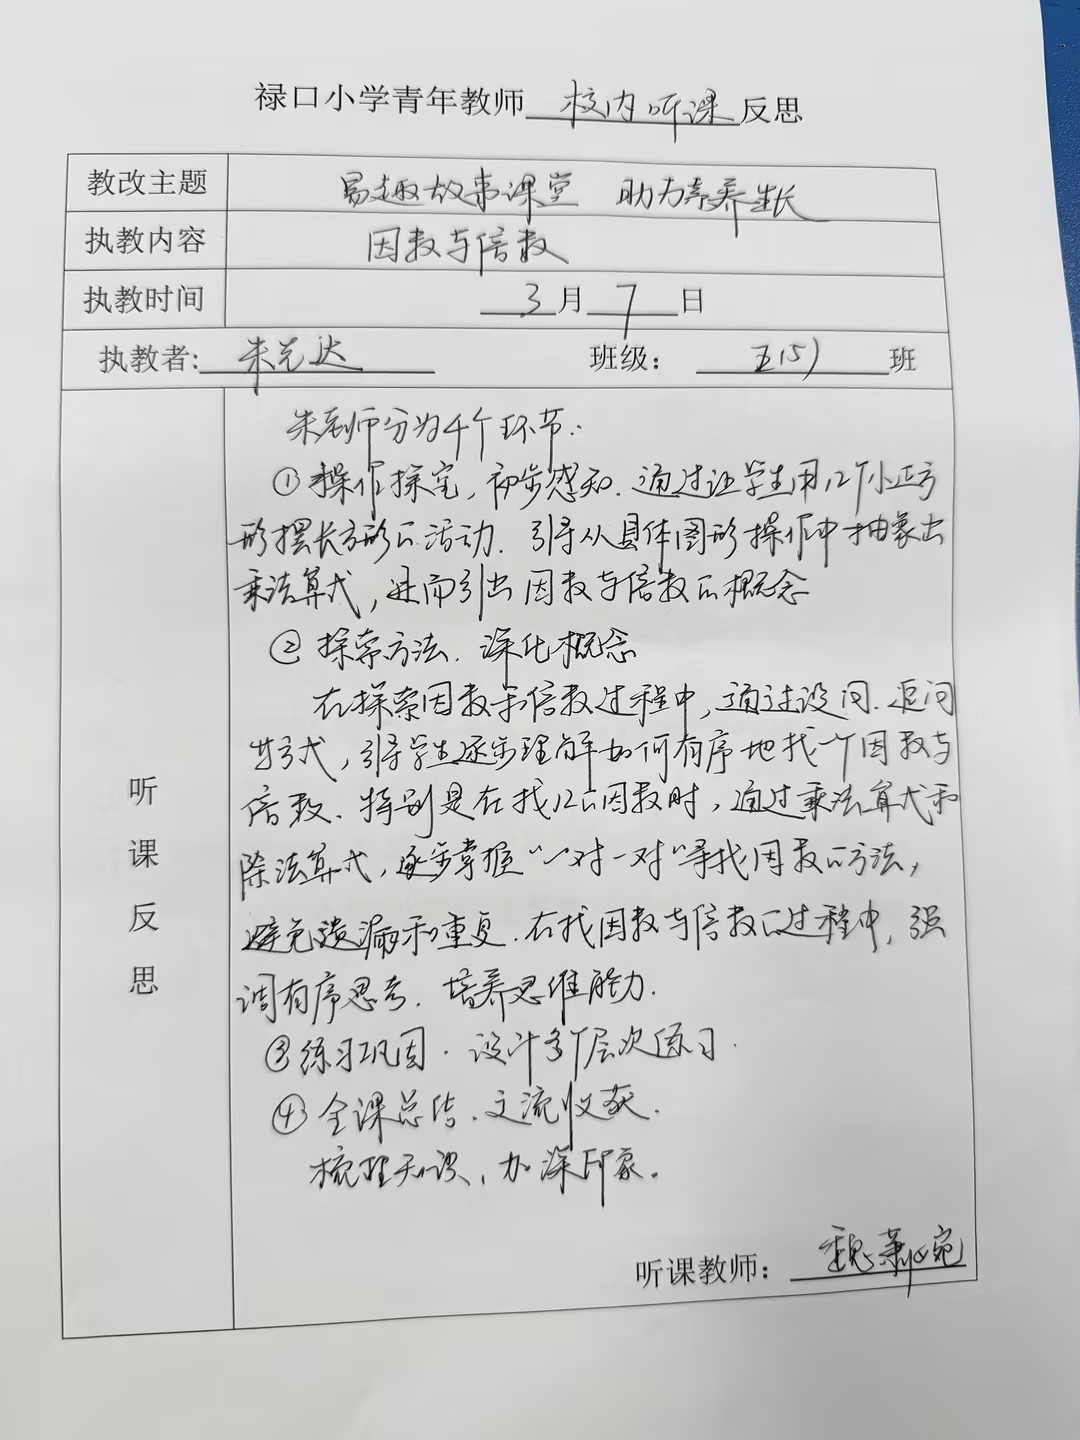 禄口小学青年教师校内听课反思
教改主题 易趣故事课堂 助力素养生长
执教内容 因数与倍数
执教时间 3月7日
执教者: 朱 达 班级: 五(5) 班
朱老师分为4个环节:
①操作探究,初步感知.通过让学生用12个小正方
形摆长方形的活动.引导从具体图形操作中抽象出
乘法算式,进而引出因数与倍数的概念
②探索方法.深化概念
在探索因数和倍数过程中,通过设问.追问
等方式,引导学生逐步理解如何有序地找一个因数与
倍数.特别是在找12的因数时,通过乘法算式和
除法算式,逐步掌握“一对一对”寻找因数的方法,
避免遗漏和重复.在找因数与倍数的过程中,强
调有序思考.培养思维能力.
③练习巩固.设计多个层次练习.
④全课总结.交流收获.
梳理知识,加深印象。
听课反思
听课教师: 魏 宛